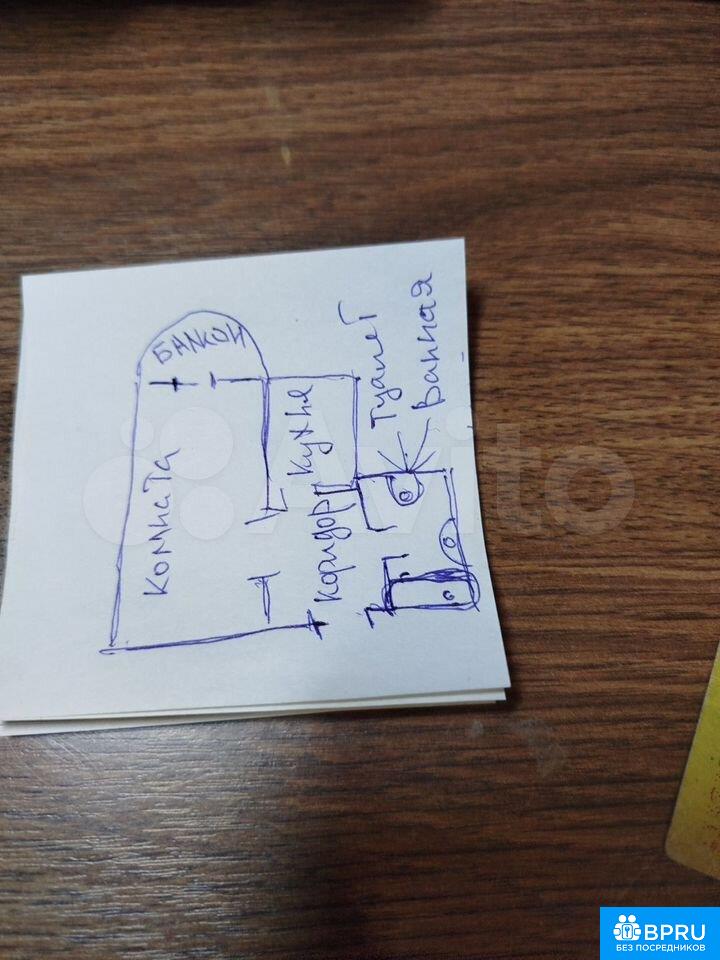 Балкон
Комната
Кухня
Коридор
Туалет
Ванная
Avito
BPRU
БЕЗ ПОСРЕДНИКОВ